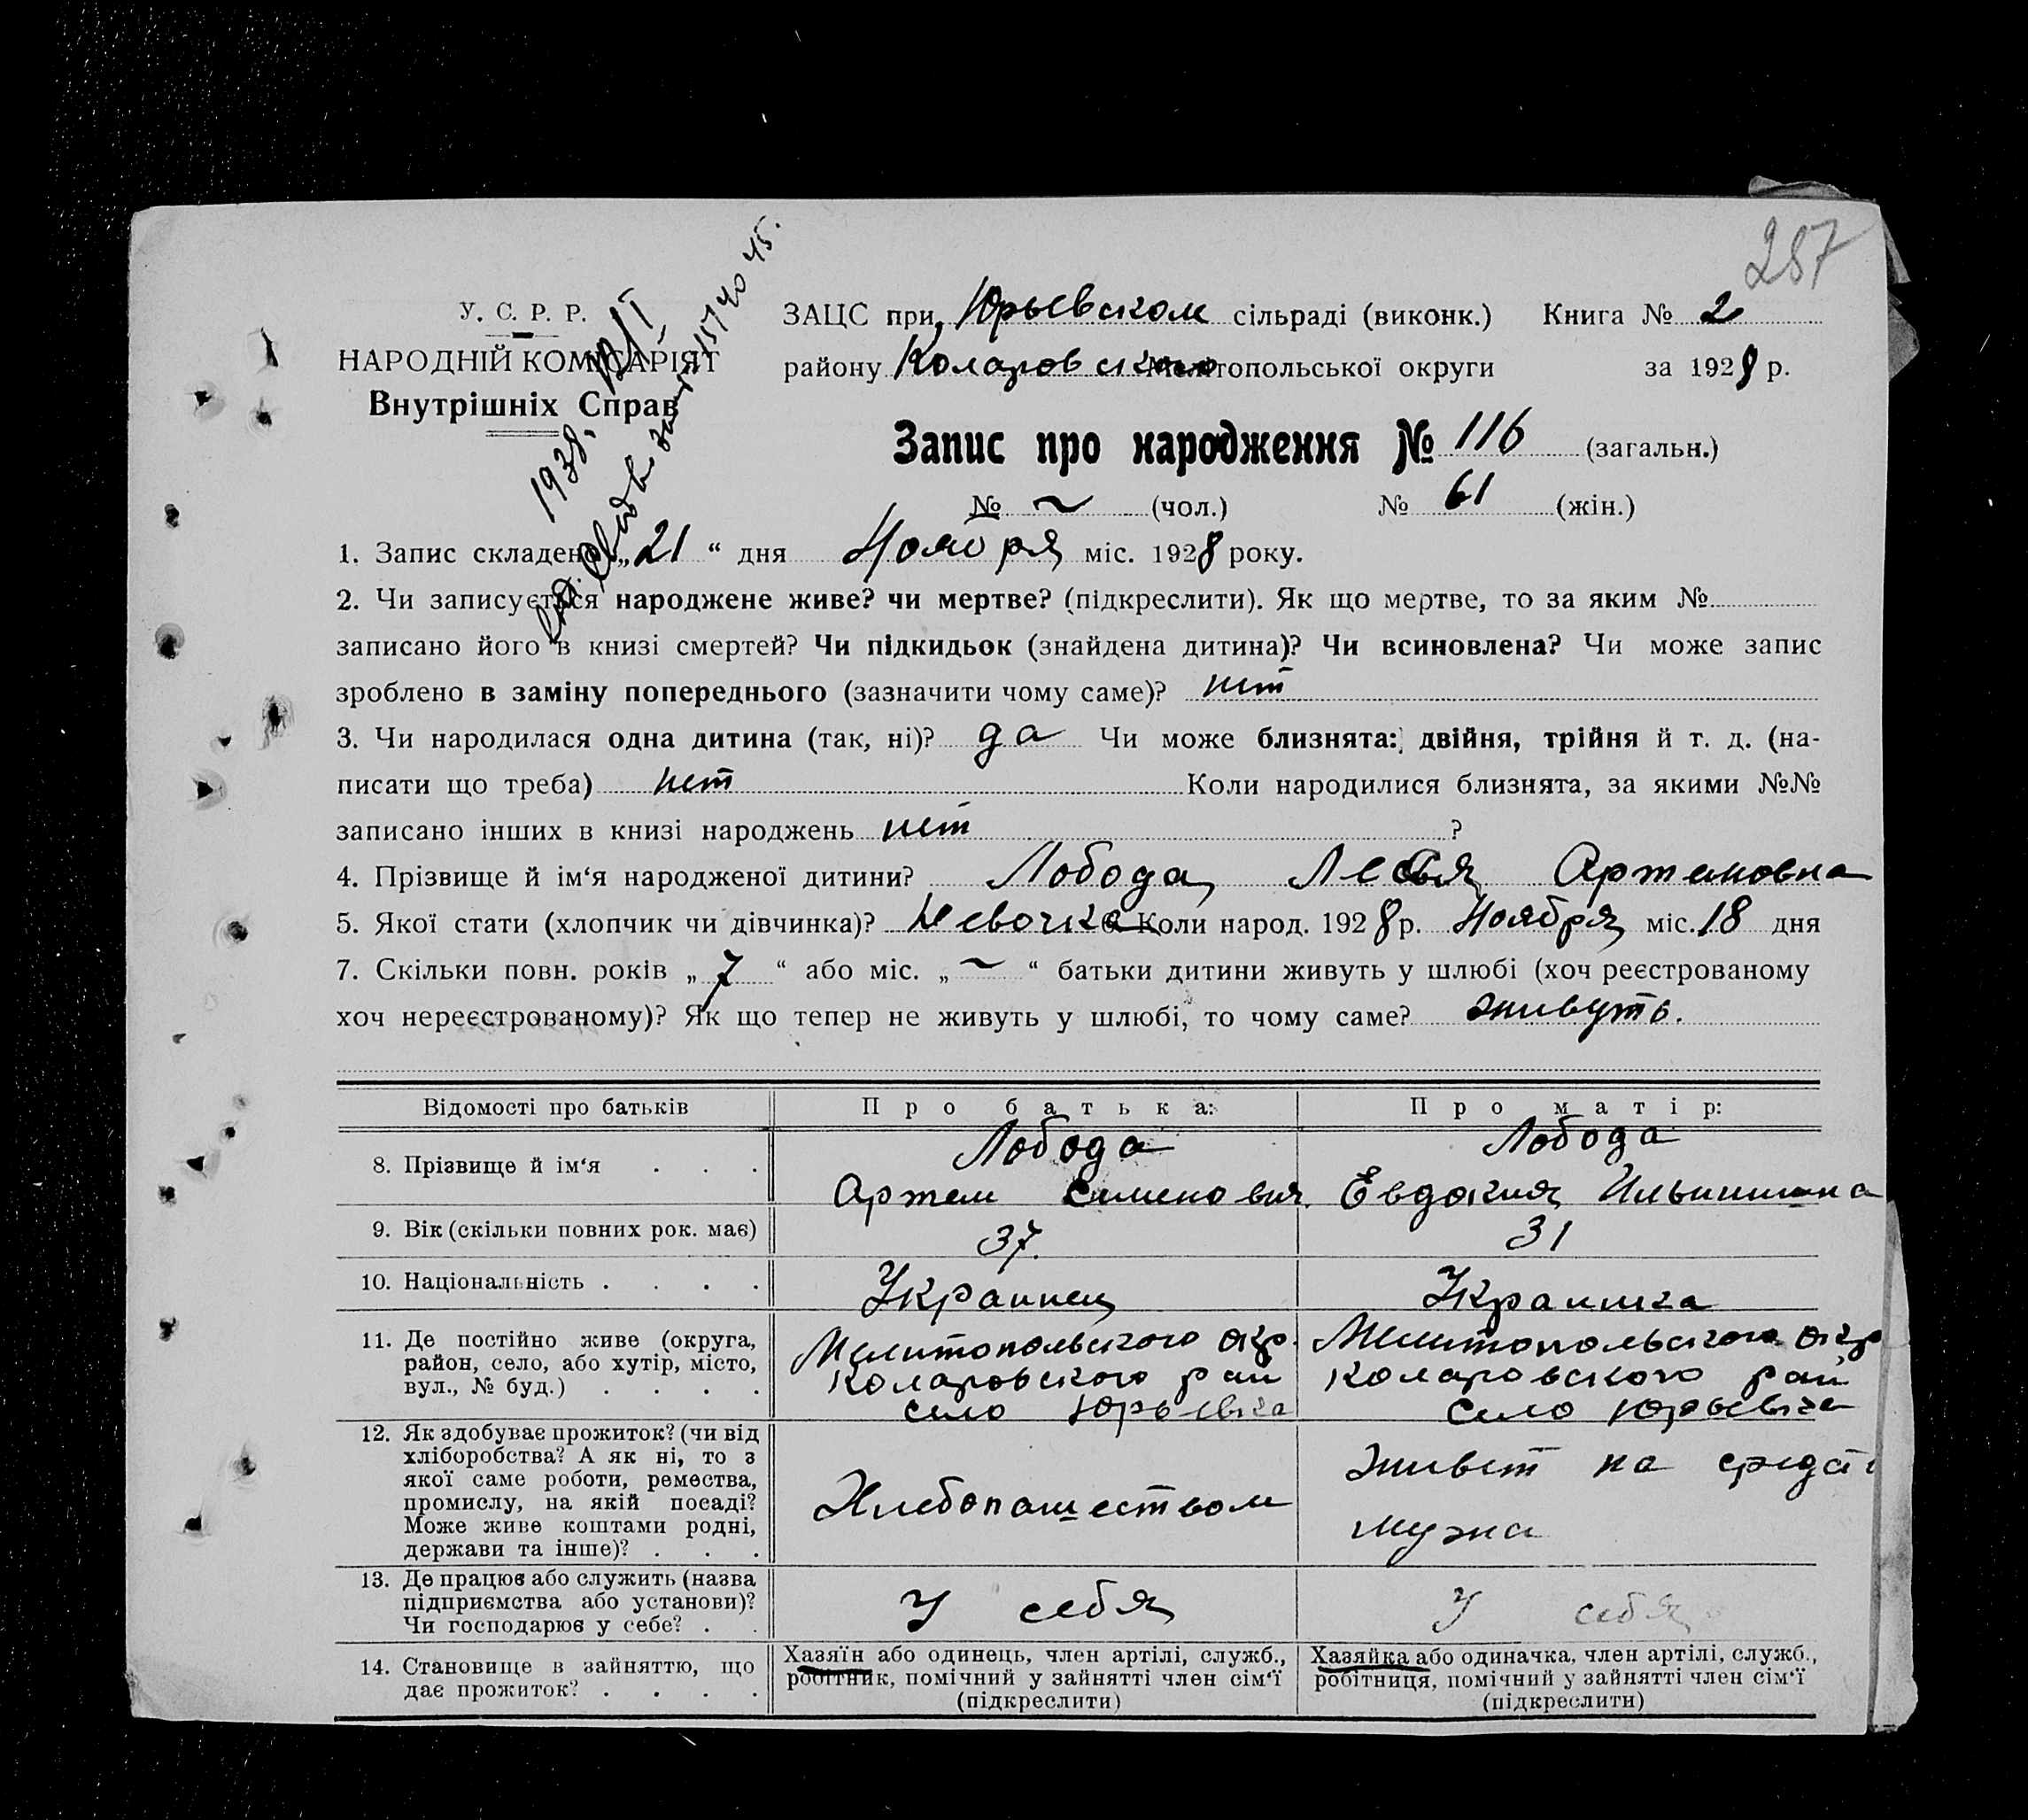 287
У. С. Р. Р.
НАРОДНІЙ КОМІСАРІЯТ
Внутрішніх Справ
ЗАЦС при Юрьевском сільраді (виконк.) Книга № 2
району Коларовского Мелітопольської округи за 1928 р.
Запис про народження № 116 (загальн.)
№ ~ (чол.) № 61 (жін.)
1938.
1. Запис складено „21“ дня Ноября міс. 1928 року.
2. Чи записується народжене живе? чи мертве? (підкреслити). Як що мертве, то за яким №
записано його в книзі смертей? Чи підкидьок (знайдена дитина)? Чи всиновлена? Чи може запис
зроблено в заміну попереднього (зазначити чому саме)? нет
3. Чи народилася одна дитина (так, ні)? да Чи може близнята: двійня, трійня й т. д. (на-
писати що треба) нет Коли народилися близнята, за якими №№
записано інших в книзі народжень нет ?
4. Прізвище й ім‘я народженої дитини? Лобода Артемовна
5. Якої стати (хлопчик чи дівчинка)? Девочка 6. Коли народ. 1928 р. Ноября міс. 18 дня
7. Скільки повн. років „7“ або міс. „~“ батьки дитини живуть у шлюбі (хоч реєстрованому
хоч нереєстрованому)? Як що тепер не живуть у шлюбі, то чому саме? живуть.
Відомості про батьків Про батька: Про матір:
8. Прізвище й ім‘я . . . Лобода Артем Семенович. Лобода Евдокия Ильинишна
9. Вік (скільки повних рок. має) 37. 31
10. Національність . . . . Украинец Украинка
11. Де постійно живе (округа,
район, село, або хутір, місто,
вул., № буд.) . . . .
Мелитопольского окр.
Коларовского рай
село Юрьевка
Мелитопольского окр
Коларовского рай
село Юрьевка
12. Як здобуває прожиток? (чи від
хліборобства? А як ні, то з
якої саме роботи, ремества,
промислу, на якій посаді?
Може живе коштами родні,
держави та інше)? . . .
Хлебопашеством
живет на
мужа
13. Де працює або служить (назва
підприємства або установи)?
Чи господарює у себе? . .
У себя
У себя
14. Становище в зайняттю, що
дає прожиток? . . . .
Хазяїн або одинець, член артілі, служб.,
робітник, помічний у зайнятті член сім‘ї
(підкреслити)
Хазяйка або одиначка, член артілі, служб.,
робітниця, помічний у зайнятті член сім‘ї
(підкреслити)